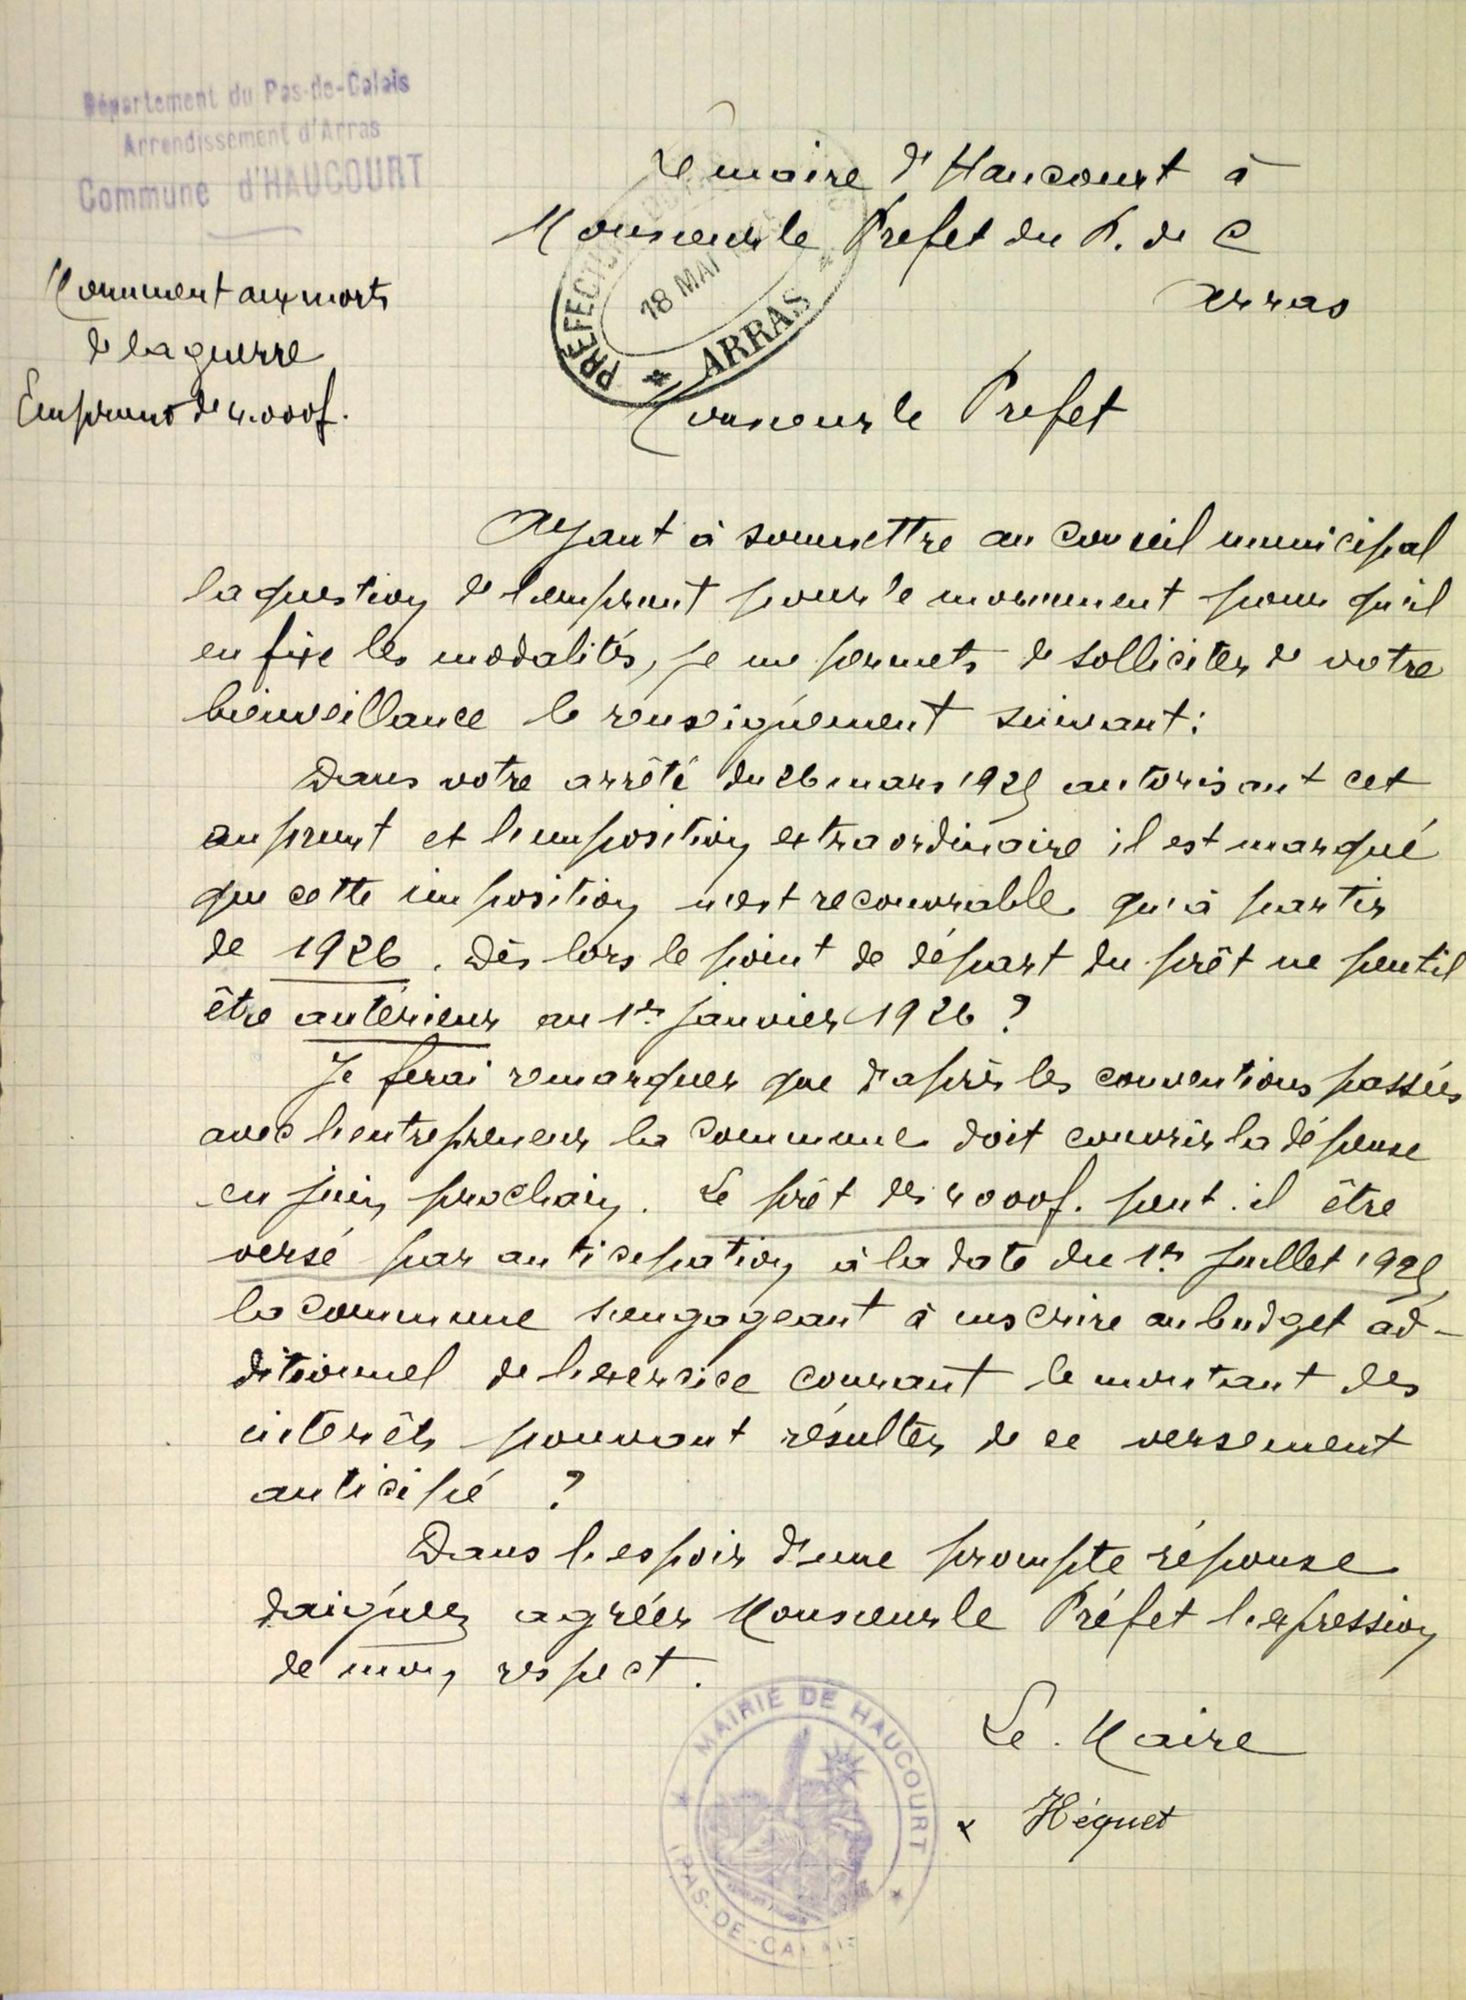 Département du Pas-de-Calais
Arrondissement d'Arras
Commune d'HAUCOURT
Monument aux morts
de la guerre
Emprunt de 4.000f.
Le maire d'Haucourt à
Monsieur le Préfet du P. de C
Arras
PRÉFECTURE
18 MAI
* ARRAS *
Monsieur le Préfet
Ayant à soumettre au conseil municipal
la question de l'emprunt pour le monument pour qu'il
en fixe les modalités, je me permets de solliciter de votre
bienveillance le renseignement suivant :
Dans votre arrêté du 26 mars 1925 autorisant cet
emprunt et l'imposition extraordinaire il est marqué
que cette imposition n'est recouvrable qu'à partir
de 1926. Dès lors le point de départ du prêt ne peut il
être antérieur au 1er janvier 1926 ?
Je ferai remarquer que d'après les conventions passées
avec l'entrepreneur la commune doit couvrir la dépense
en juin prochain. Le prêt de 4000f. peut-il être
versé par anticipation à la date du 1er juillet 1925
la commune s'engageant à inscrire au budget ad-
ditionnel de l'exercice courant le montant des
intérêts pouvant résulter de ce versement
anticipé ?
Dans l'espoir d'une prompte réponse
daignez agréer Monsieur le Préfet l'expression
de mon respect.
Le Maire
Héquet
MAIRIE DE HAUCOURT
(PAS-DE-CALAIS